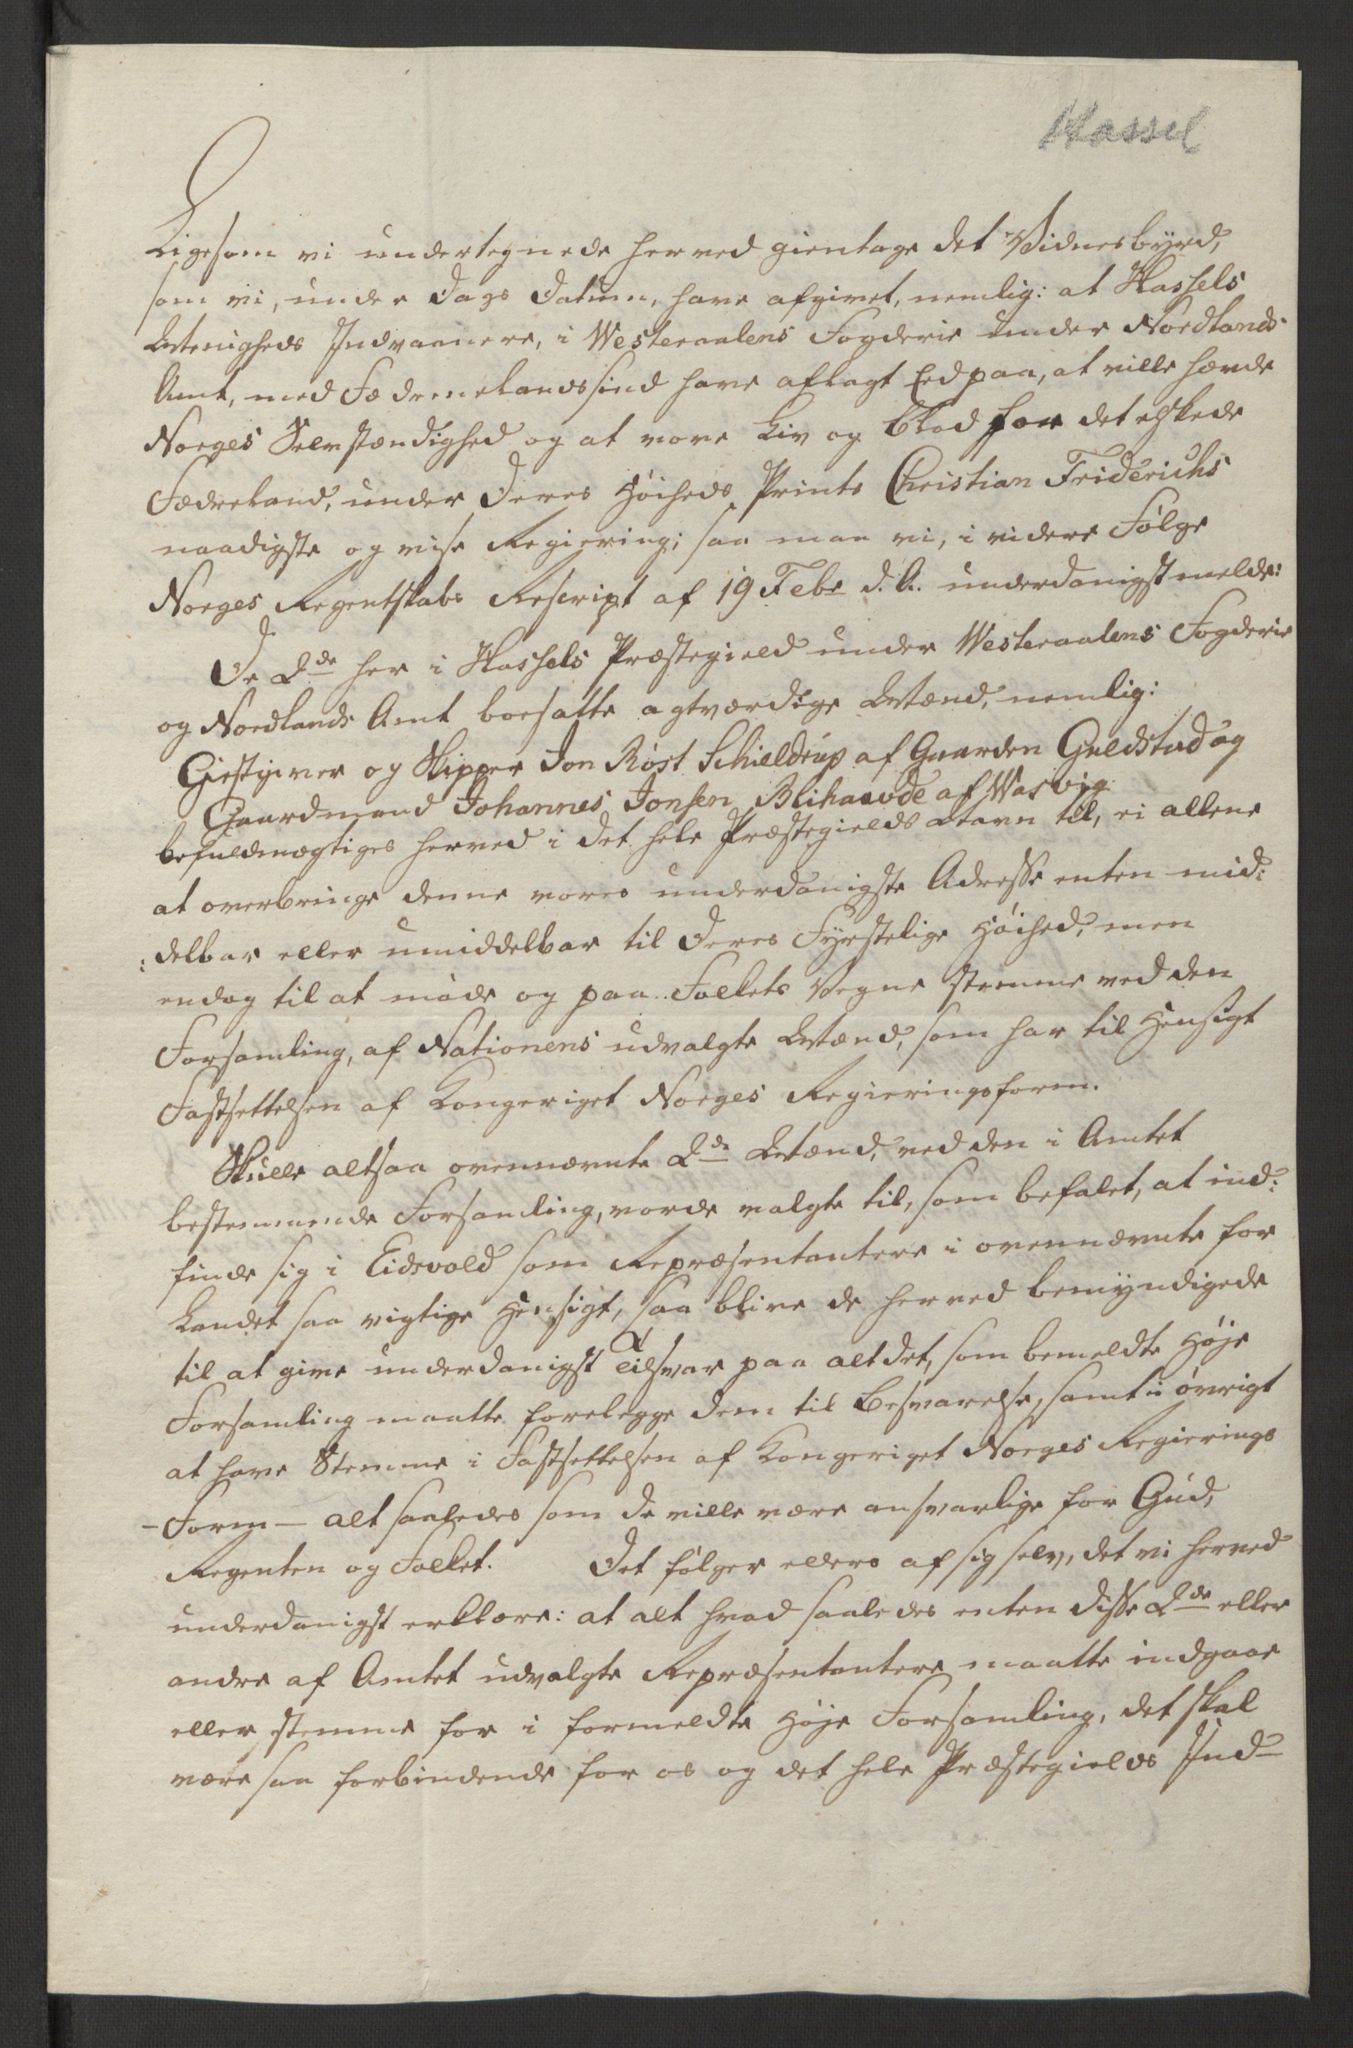 Hassel
Ligesom vi undertegnede herved gientage det Vidnesbyrd,
som vi, under Dags Datum, have afgivet, nemlig: at Hassels
Menigheds Indvaanere, i Westeraalens Fogderie under Nordlands
Amt, med Fædrenelandssind have aflagt Eed paa, at ville hævde
Norges Selvstændighed og at vove Liv og Blod for det elskede
Fædreland, under Deres Høiheds Prints Christian Friderichs
naadigste og vise Regiering; saa maa vi, i videre Følge
Norges Regentskabs Rescript af 19 Febr d. A. underdanigst melde:
De 2de her i Hassels Præstegield under Westeraalens Fogderie
og Nordlands Amt boesatte agtværdige Mænd, nemlig:
Giestgiver og Skipper Jon Røst Schieldrup af Gaarden Guldstad og
Gaardmand Johannes Jonsen Blihaavde af Wasvig
befuldmægtiges herved i det hele Præstegields Navn til, ei allene
at overbringe denne vores underdanigste Adresse enten mid:
:delbar eller umiddelbar til Deres Fyrstelige Høihed, men
endog til at møde og paa Folkets Vegne stemme ved den
Forsamling, af Nationens udvalgte Mænd, som har til Hensigt
Fastsettelsen af Kongeriget Norges Regieringsform.
Skulle altsaa ovennævnte 2de Mænd, ved den i Amtet
bestemmende Forsamling, vorde valgte til, som befalet, at ind:
finde sig i Eidsvold som Repræsentantere i ovennævnte for
Landet saa vigtige Hensigt, saa blive de herved bemyndigede
til at give underdanigst Tilsvar paa alt det, som bemeldte Høje
Forsamling maatte forelegge dem til Besvarelse, samt i øvrigt
at have Stemme i Fastsettelsen af Kongeriget Norges Regierings
-Form - alt saaledes som de ville være ansvarlige for Gud,
Regenten og Folket. Det følger ellers af sig selv, det vi herved
underdanigst erklære: at alt hvad saaledes enten disse 2de eller
andre af Amtet udvalgte Repræsentantere maatte indgaae
eller stemme for i formeldte Høje Forsamling, det skal
være saa forbindende for os og det hele Præstegields Ind-